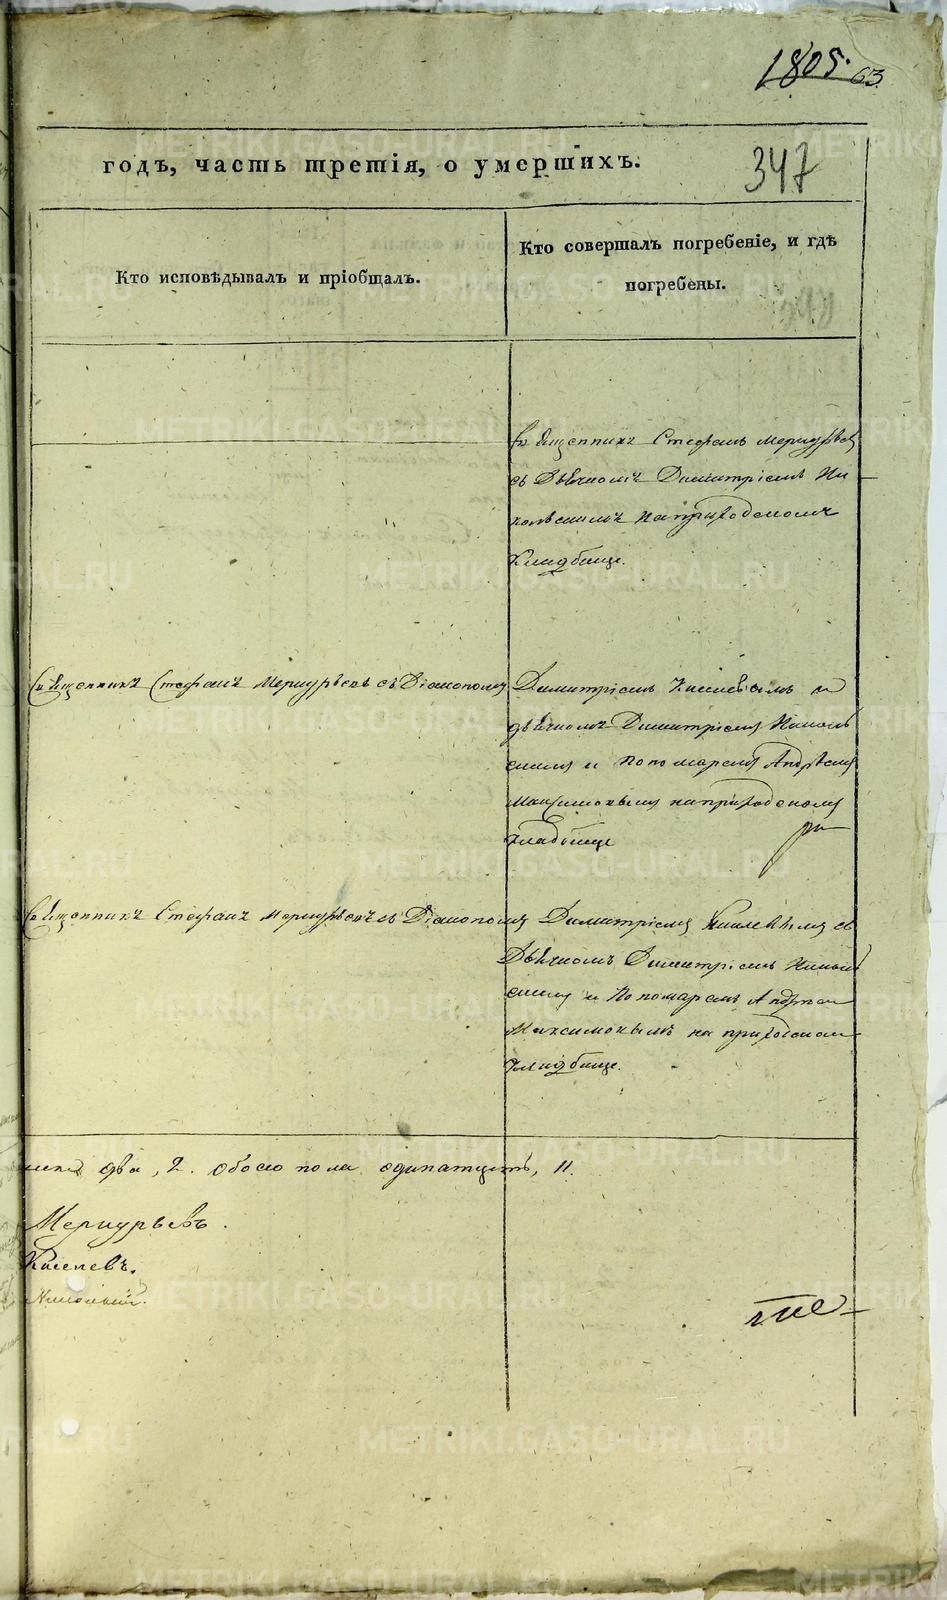 1805. 63
годъ, часть третія, о умершихъ.
347
Кто исповѣдывалъ и пріобщалъ.
Кто совершалъ погребеніе, и гдѣ
погребены.
Священникъ Стефанъ Меркурьев
съ Дьячкомъ Димитріемъ Ни
кольскимъ на приходскомъ
кладбище.
Священникъ Стефанъ Меркурьевъ съ Діакономъ Димитріемъ Киселевымъ и
дьячкомъ Димитріемъ Николь
скимъ и Пономаремъ Андреемъ
Максимовымъ на приходскомъ
кладбище
Священникъ Стефанъ Меркурьевъ съ Діакономъ Димитріемъ Киселевымъ съ
Дьячкомъ Димитріемъ Николь
скимъ и Пономаремъ Андреем
Максимовымъ на приходском
кладбище.
два, 2. обоего пола одинатцать, 11.
Меркурьевъ.
Киселевъ.
Никольскій.
METRIKI.GASO-URAL.RU